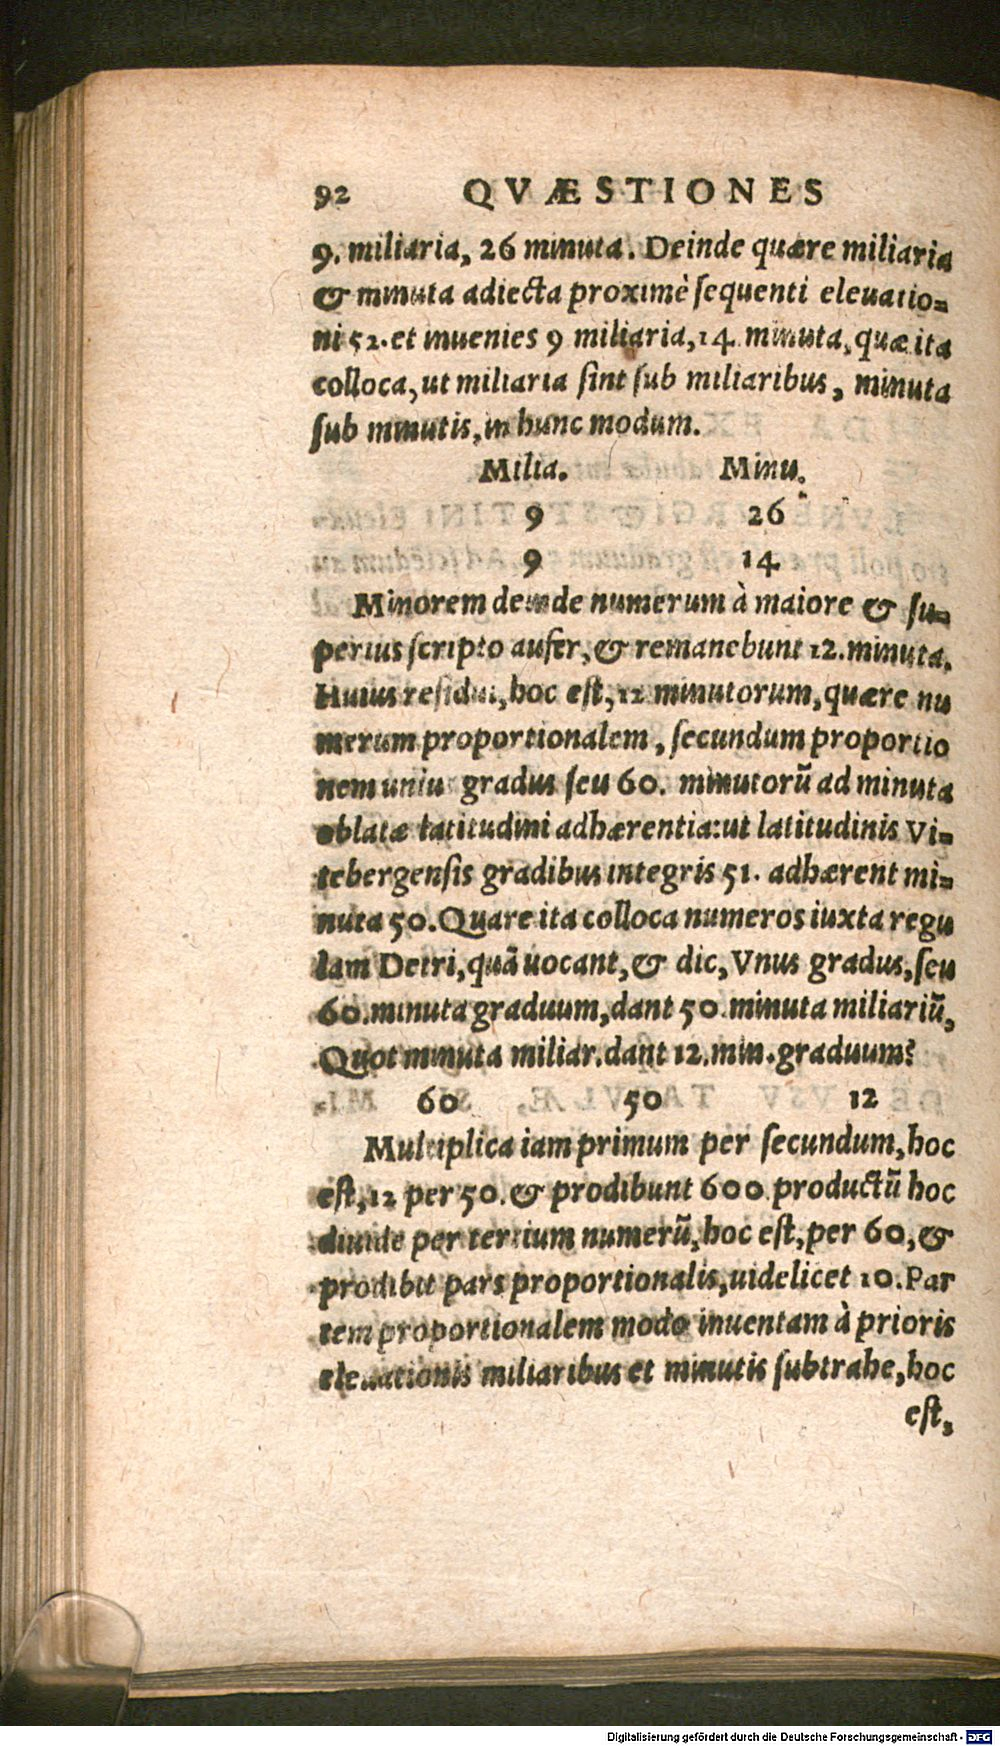 92 QVÆSTIONES
9. miliaria, 26 minuta. Deinde quære miliaria
& minuta adiecta proximè ſequenti eleuatio=
ni 52. et inuenies 9 miliaria, 14 minuta, quæ ita
colloca, ut miliaria ſint ſub miliaribus, minuta
ſub minutis, in hunc modum.
Milia. Minu.
9 26
9 14
Minorem deinde numerum à maiore & ſu=
perius ſcripto aufer, & remanebunt 12. minuta.
Huius reſidui, hoc eſt, 12 minutorum, quære nu
merum proportionalem, ſecundum proportio
nem unius gradus ſeu 60. minutorũ ad minuta
oblatæ latitudini adhærentia: ut latitudinis Vi=
tebergenſis gradibus integris 51. adhærent mi=
nuta 50. Quare ita colloca numeros iuxta regu
lam Detri, quã uocant, & dic, Vnus gradus, ſeu
60. minuta graduum, dant 50. minuta miliariũ,
Quot minuta miliar. dant 12. min. graduum?
60 50 12
Multiplica iam primum per ſecundum, hoc
eſt, 12 per 50. & prodibunt 600 productũ hoc
diuide per tertium numerũ, hoc eſt, per 60, &
prodibit pars proportionalis, uidelicet 10. Par
tem proportionalem modo inuentam à prioris
eleuationis miliaribus et minutis ſubtrahe, hoc
eſt,
Digitalisierung gefördert durch die Deutsche Forschungsgemeinschaft - DFG